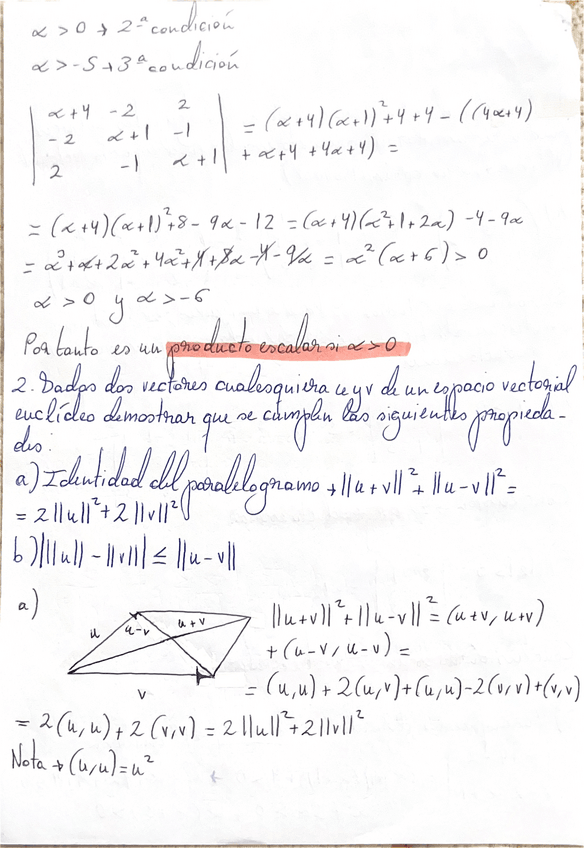 α > 0 → 2ª condición
α > -5 → 3ª condición
| α+4 -2 2 |
| -2 α+1 -1 | = (α+4)(α+1)²+4+4-((4α+4)
| 2 -1 α+1 | + α+4+4α+4) =
= (α+4)(α+1)²+8-9α-12 = (α+4)(α²+1+2α) -4-9α
= α³+α+2α²+4α²+4+8α-4-9α = α²(α+6) > 0
α > 0 y α > -6
Por tanto es un producto escalar si α > 0
2. Dados dos vectores cualesquiera u y v de un espacio vectorial
euclídeo demostrar que se cumplen las siguientes propieda-
des:
a) Identidad del paralelogramo → ||u+v||² + ||u-v||² =
= 2||u||² + 2||v||²
b) | ||u|| - ||v|| | ≤ ||u-v||
a)
u u-v u+v
v
||u+v||² + ||u-v||² = (u+v, u+v)
+ (u-v, u-v) =
= (u,u) + 2(u,v) + (u,u) - 2(v,v) + (v,v)
= 2(u,u) + 2(v,v) = 2||u||² + 2||v||²
Nota → (u,u) = u²